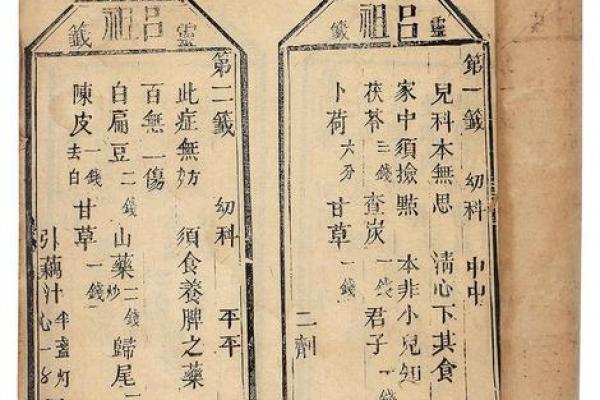 靈呂祖籤
第一籤 幼科 中中
兒科本無思 清心下其食
家中須撿點 本非小兒知
茯苓三錢 查炭一錢 君子一錢
卜荷六分 甘草一錢 二劑
靈呂祖籤
第二籤 幼科 平平
此症無妨 須食養脾之藥
百無一傷
白扁豆二錢 山藥炒二錢 歸尾一
陳皮去白一錢 甘草一錢
引藕汁半盞灯心一